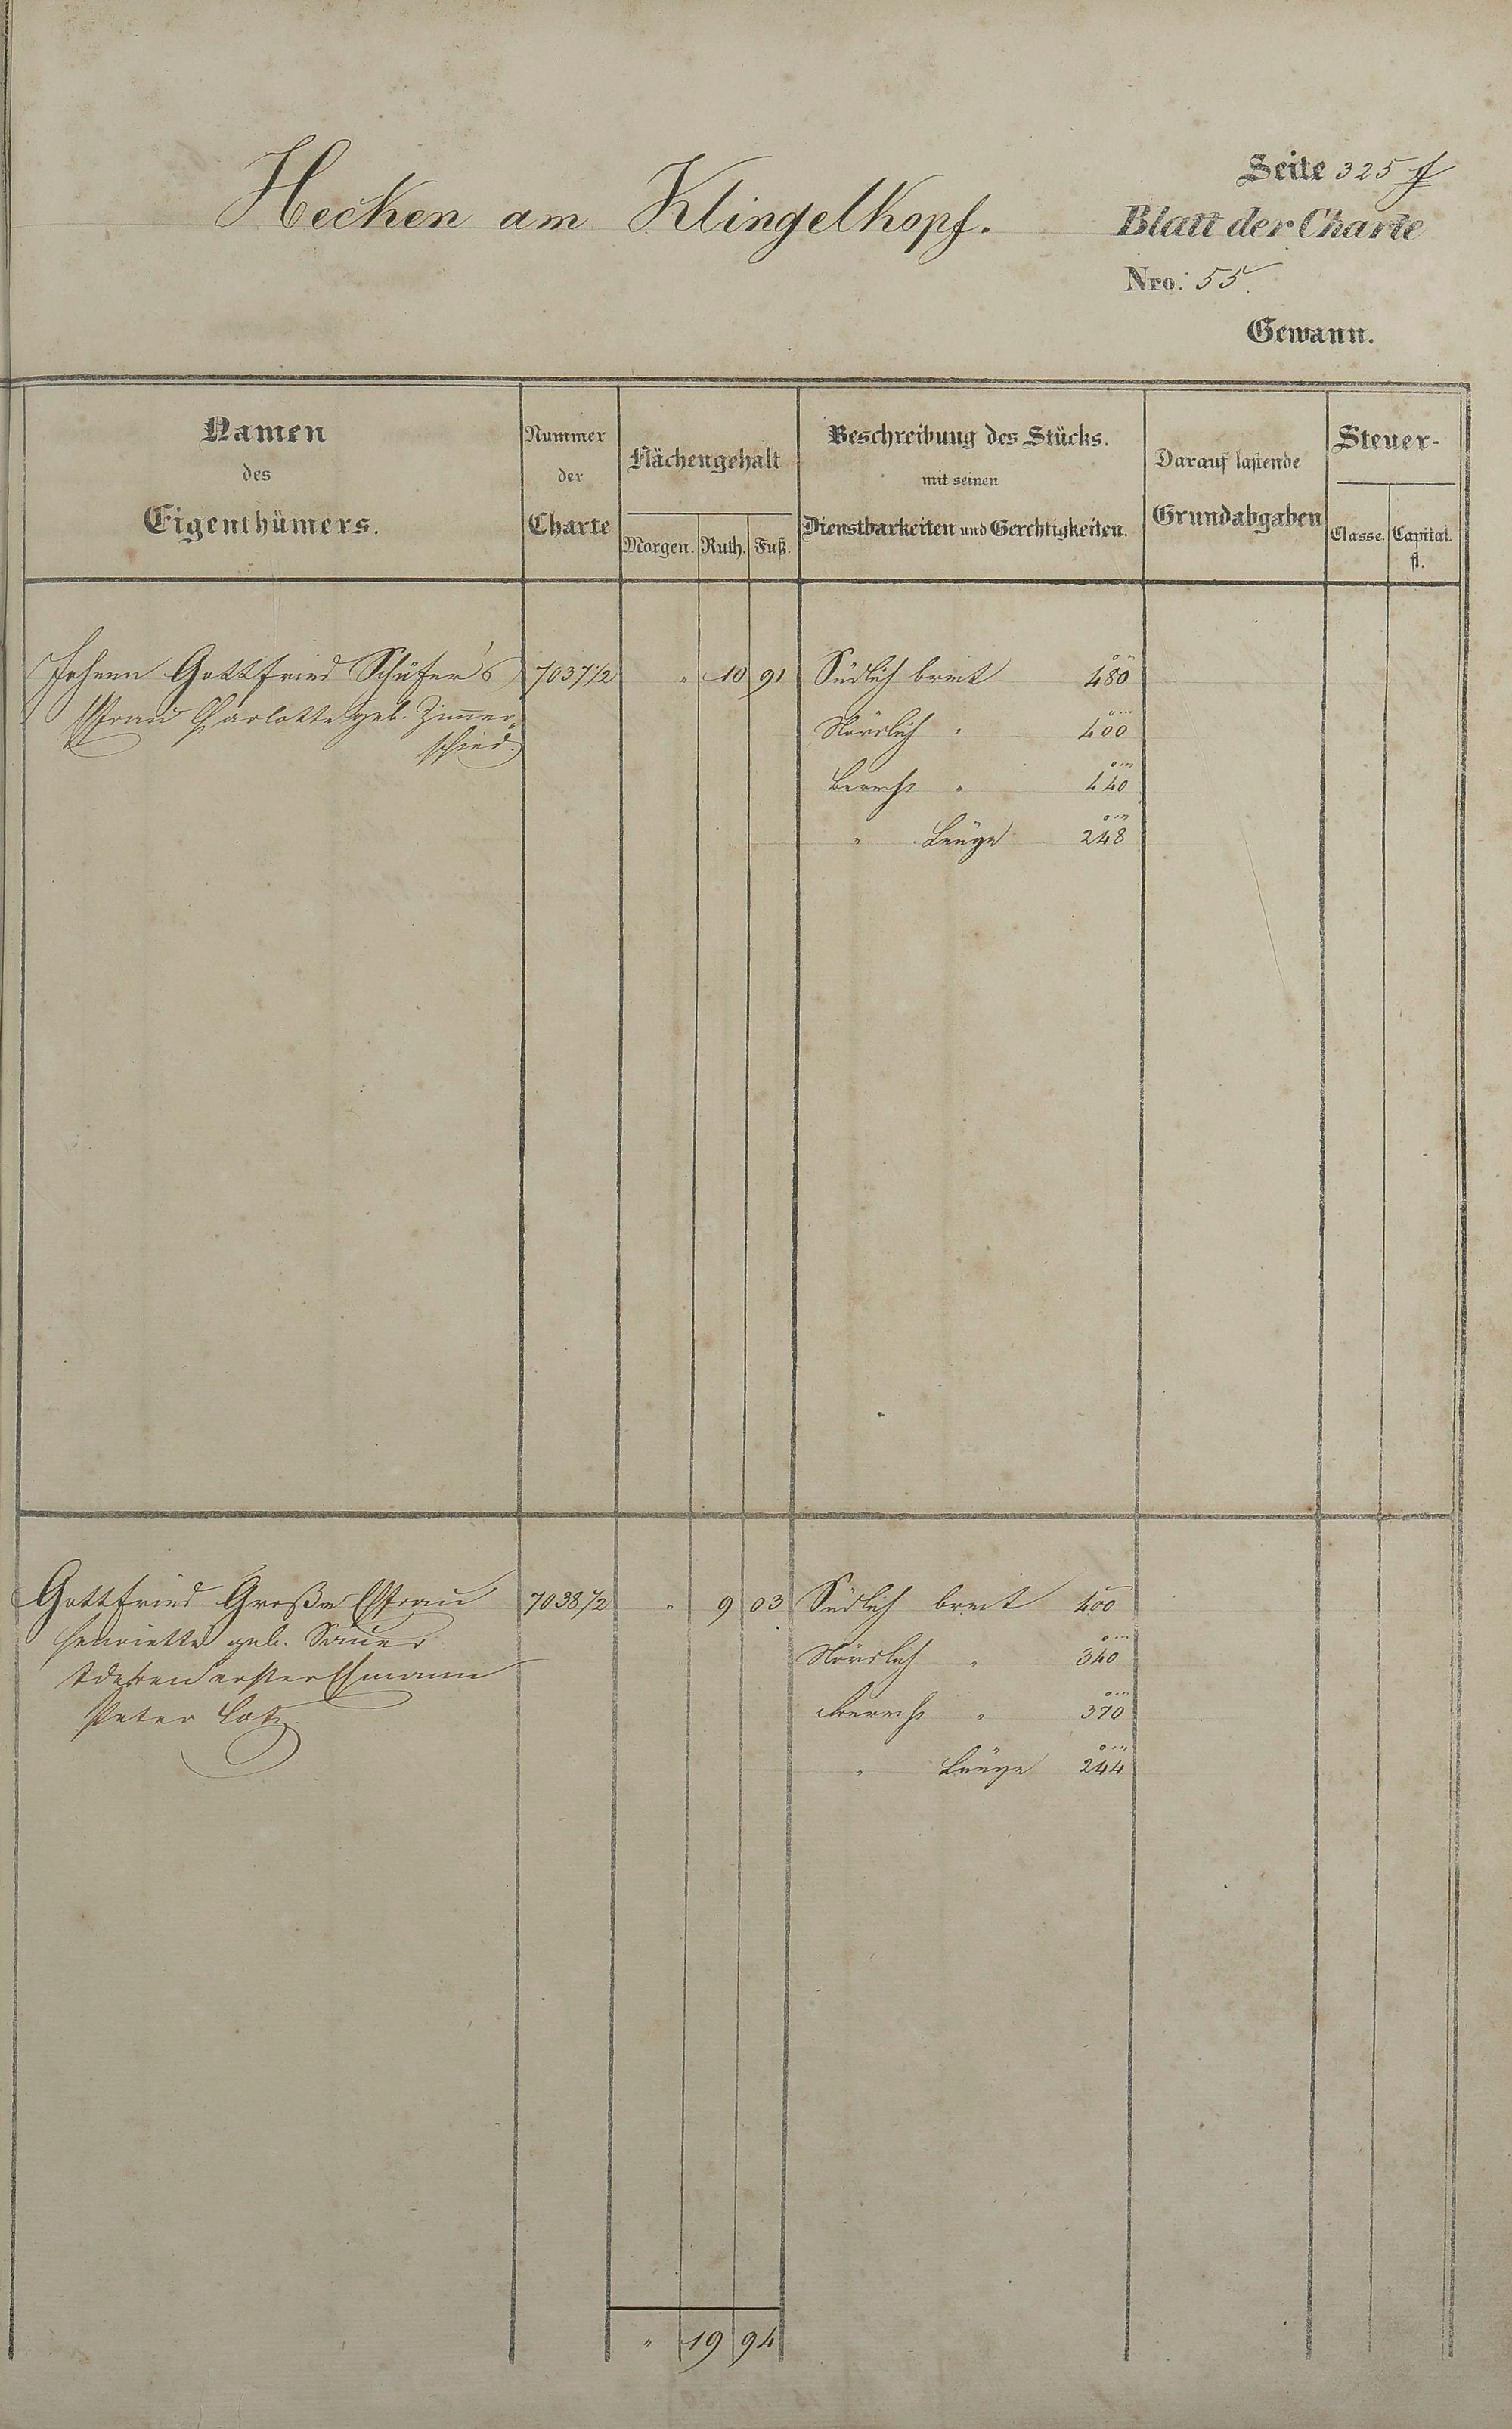 Hecken am Klingelkopf.
Seite 325 f
Blatt der Charte
Nro. 55.
Gewann.
Namen des Eigenthümers.
Nummer der Charte
Flächengehalt
Morgen. Ruth. Fuß.
Beschreibung des Stücks.
mit seinen
Dienstbarkeiten und Gerechtigkeiten.
Darauf lastende
Grundabgaben
Steuer-
Classe. Capital.
fl.
Johann Gottfried Schäfer's 7037 1/2 " 10 91 Südlich breit 480
Ehfrau Charlotte geb. Zimmer- Nördlich " 400
schied. " 440
" Länge 248
Gottfried Große Ehfrau 7038 1/2 " 9 03 Südlich breit 400
Henriette geb. Sauer Nördlich " 340
erster Ehmann " 370
Peter Lotz " Länge 244
" 19 94